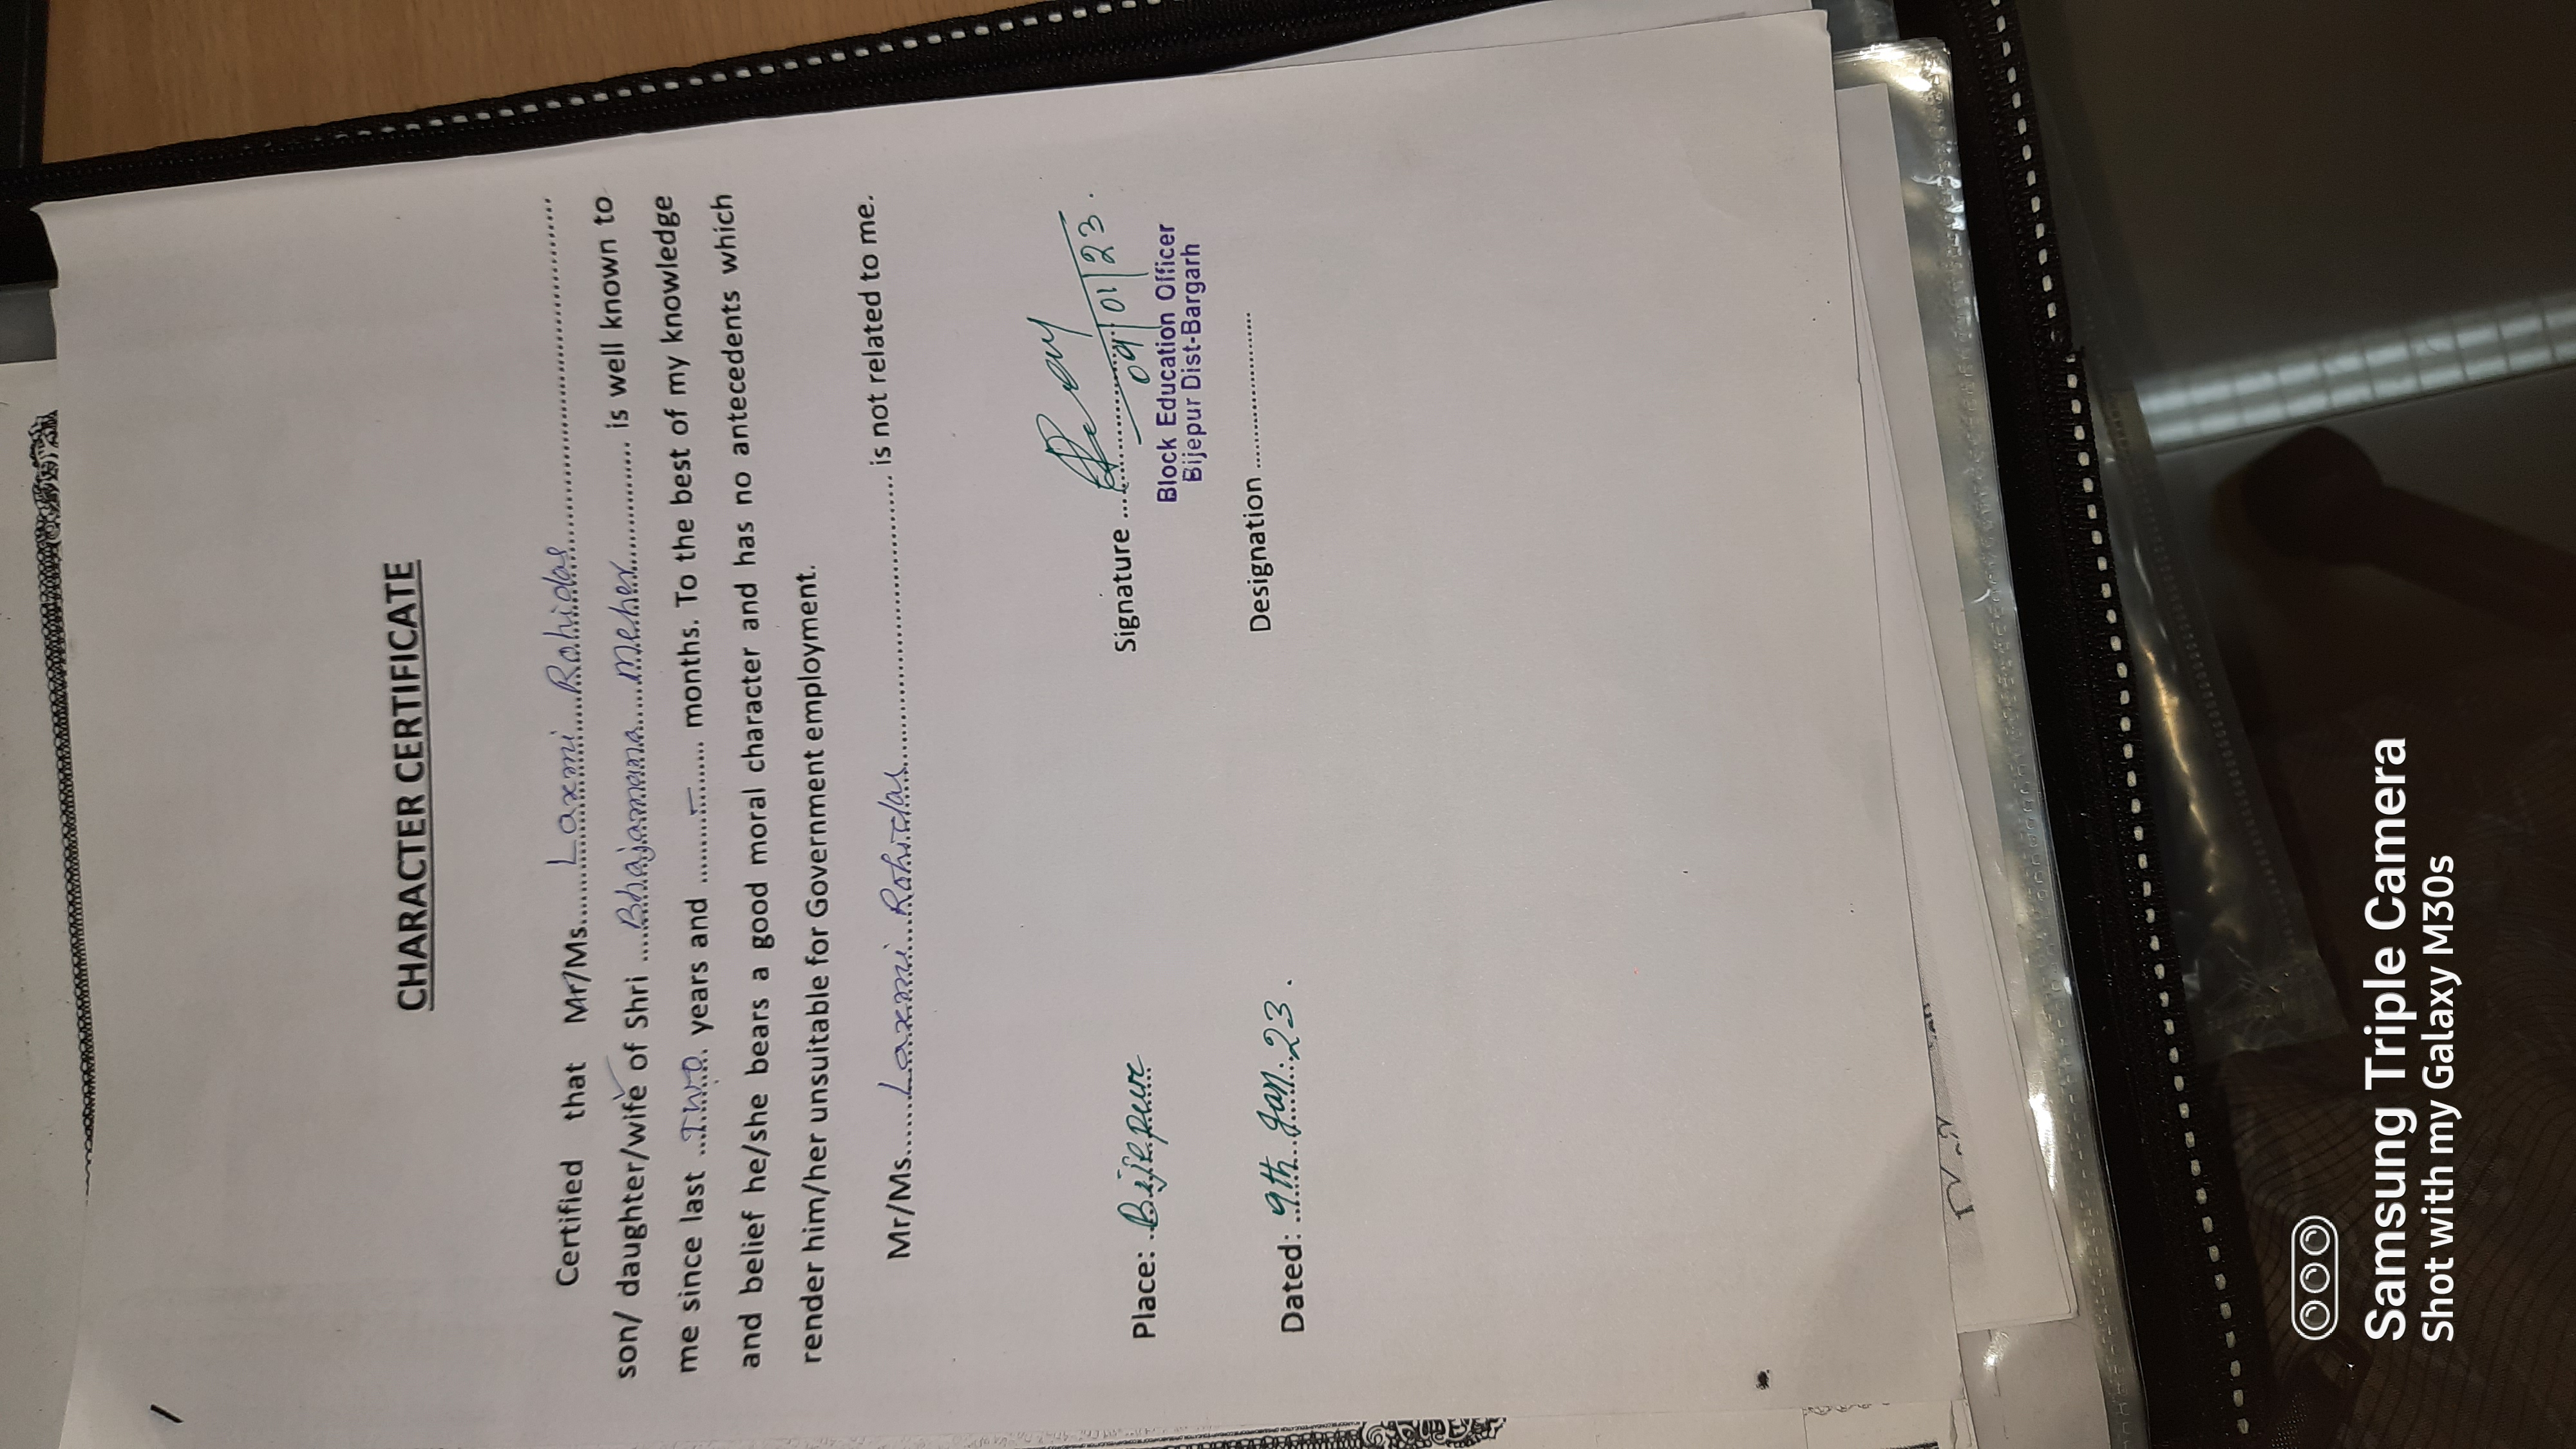 CHARACTER CERTIFICATE
Certified that Mr/Ms.......Laxmi Rohidas..............................
son/ daughter/wife of Shri ....Bhajamana meher............... is well known to
me since last ...TWO.. years and ..........–........ months. To the best of my knowledge
and belief he/she bears a good moral character and has no antecedents which
render him/her unsuitable for Government employment.
Mr/Ms......Laxmi Rohidas.............................. is not related to me.
Place: Bijepur
Signature ....
09/01/23.
Block Education Officer
Bijepur Dist-Bargarh
Designation ........................
Dated: 9th Jan. 23.
Samsung Triple Camera
Shot with my Galaxy M30s